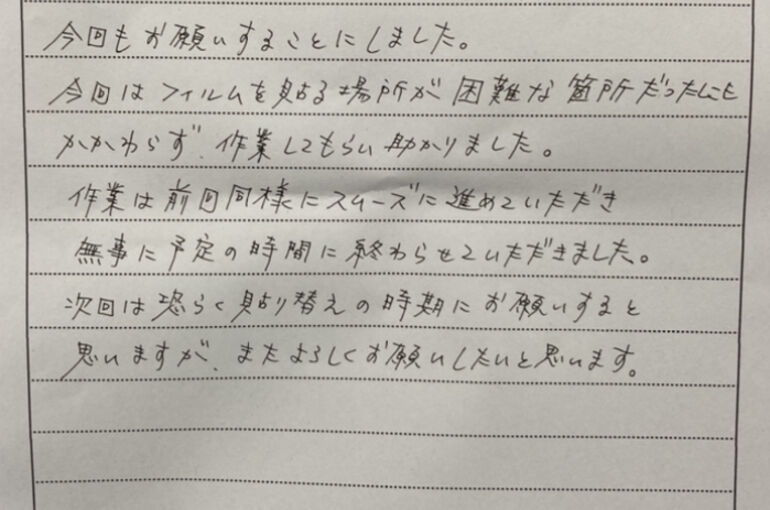 今回もお願いすることにしました。
今回はフィルムを貼る場所が困難な箇所だったにも
かかわらず、作業してもらい助かりました。
作業は前回同様にスムーズに進めていただき
無事に予定の時間に終わらせていただきました。
次回は恐らく貼り替えの時期にお願いすると
思いますが、またよろしくお願いしたいと思います。